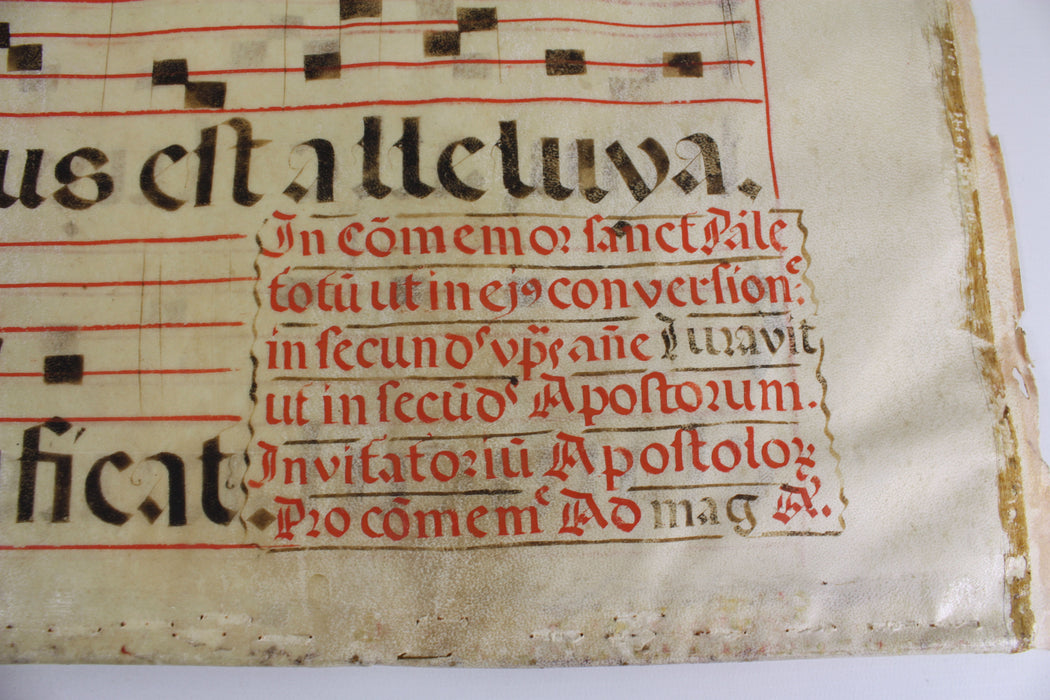 us est alleluya.
In cõmemoꝛ sanct Pale
totũ ut in ejꝰ conversionᵉ:
in secund vp̃s añe Iuravit
ut in secũd Apostoꝛum.
ficat.
Invitatoꝛiũ Apostoloꝝ
Pꝛo cõmemᵉ Ad mag A.